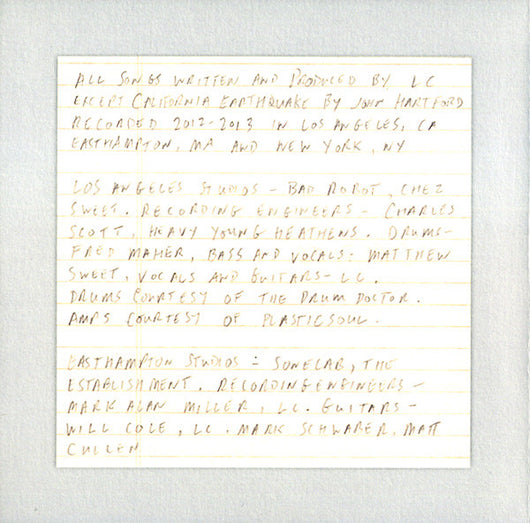 ALL SONGS WRITTEN AND PRODUCED BY LC
EXCEPT CALIFORNIA EARTHQUAKE BY JOHN HARTFORD
RECORDED 2012-2013 IN LOS ANGELES, CA
EASTHAMPTON, MA AND NEW YORK, NY
LOS ANGELES STUDIOS - BAD ROBOT, CHEZ
SWEET. RECORDING ENGINEERS - CHARLES
SCOTT, HEAVY YOUNG HEATHENS. DRUMS-
FRED MAHER, BASS AND VOCALS: MATTHEW
SWEET, VOCALS AND GUITARS- LC.
DRUMS COURTESY OF THE DRUM DOCTOR.
AMPS COURTESY OF PLASTICSOUL.
EASTHAMPTON STUDIOS - SONELAB, THE
ESTABLISHMENT. RECORDING ENGINEERS -
MARK ALAN MILLER, LC. GUITARS-
WILL COLE, LC. MARK SCHWABER, MATT
CULLEN